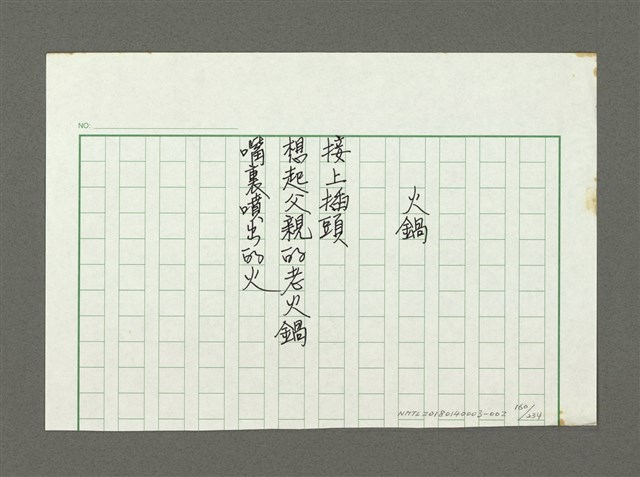 NO:
火鍋
接上插頭
想起父親的老火鍋
嘴裏噴出的火
NMTL20180140003-002
160/234